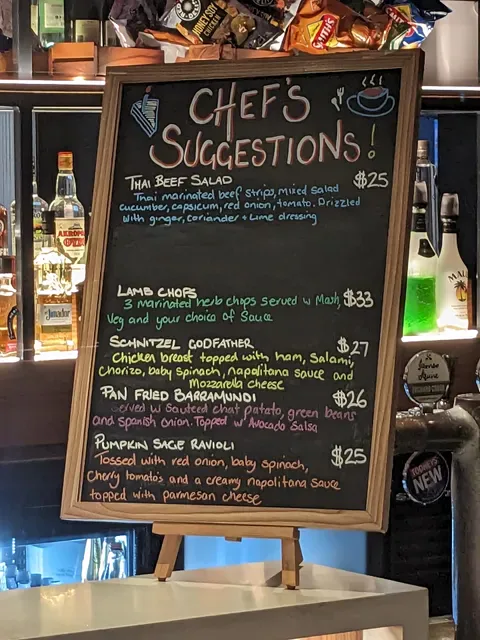 HONEY SOY
CHICKEN
Smith's
CHEF'S
SUGGESTIONS!
THAI BEEF SALAD $25
Thai marinated beef strips, mixed salad
cucumber, capsicum, red onion, tomato. Drizzled
with ginger, coriander + Lime dressing
LAMB CHOPS $33
3 marinated herb chops served w Mash,
Veg and your choice of Sauce
SCHNITZEL GODFATHER $27
Chicken breast topped with ham, Salami,
Chorizo, baby spinach, napolitana sauce and
Mozzarella cheese
PAN FRIED BARRAMUNDI $26
served w Sauteed chat potato, green beans
and Spanish onion. Topped w/ Avocado Salsa
PUMPKIN SAGE RAVIOLI $25
Tossed with red onion, baby spinach,
Cherry tomatos and a creamy napolitana sauce
topped with parmesan cheese
el Jimador
MALI
James
Squire
TOOHEYS
NEW